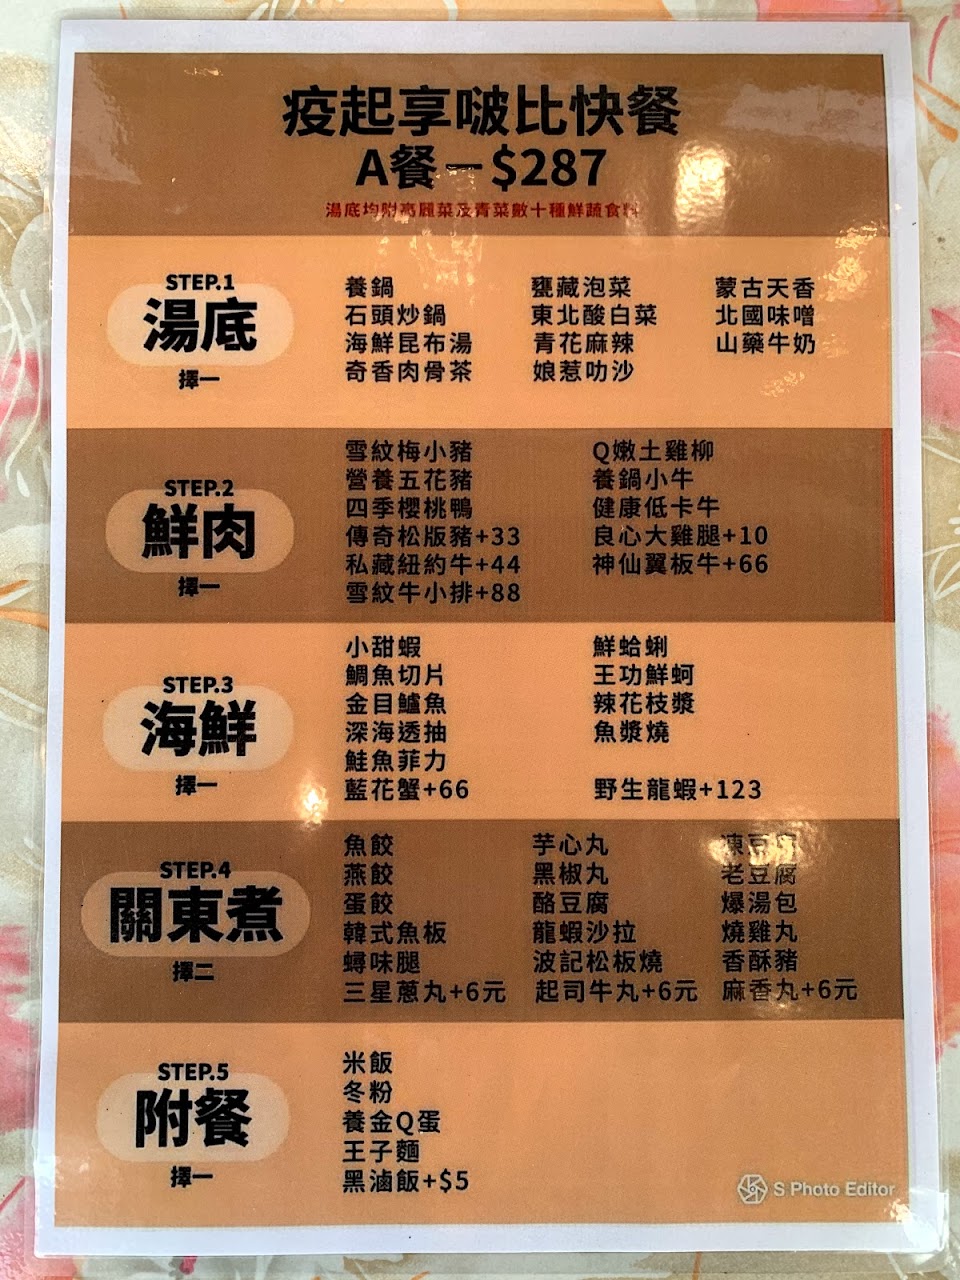 疫起享啵比快餐
A餐－$287
湯底均附高麗菜及青菜數十種鮮蔬食料
STEP.1
湯底
擇一
養鍋 甕藏泡菜 蒙古天香
石頭炒鍋 東北酸白菜 北國味噌
海鮮昆布湯 青花麻辣 山藥牛奶
奇香肉骨茶 娘惹叻沙
STEP.2
鮮肉
擇一
雪紋梅小豬 Q嫩土雞柳
營養五花豬 養鍋小牛
四季櫻桃鴨 健康低卡牛
傳奇松版豬+33 良心大雞腿+10
私藏紐約牛+44 神仙翼板牛+66
雪紋牛小排+88
STEP.3
海鮮
擇一
小甜蝦 鮮蛤蜊
鯛魚切片 王功鮮蚵
金目鱸魚 辣花枝漿
深海透抽 魚漿燒
鮭魚菲力
藍花蟹+66 野生龍蝦+123
STEP.4
關東煮
擇二
魚餃 芋心丸 凍豆腐
燕餃 黑椒丸 老豆腐
蛋餃 酪豆腐 爆湯包
韓式魚板 龍蝦沙拉 燒雞丸
蟳味腿 波記松板燒 香酥豬
三星蔥丸+6元 起司牛丸+6元 麻香丸+6元
STEP.5
附餐
擇一
米飯
冬粉
養金Q蛋
王子麵
黑滷飯+$5
S Photo Editor